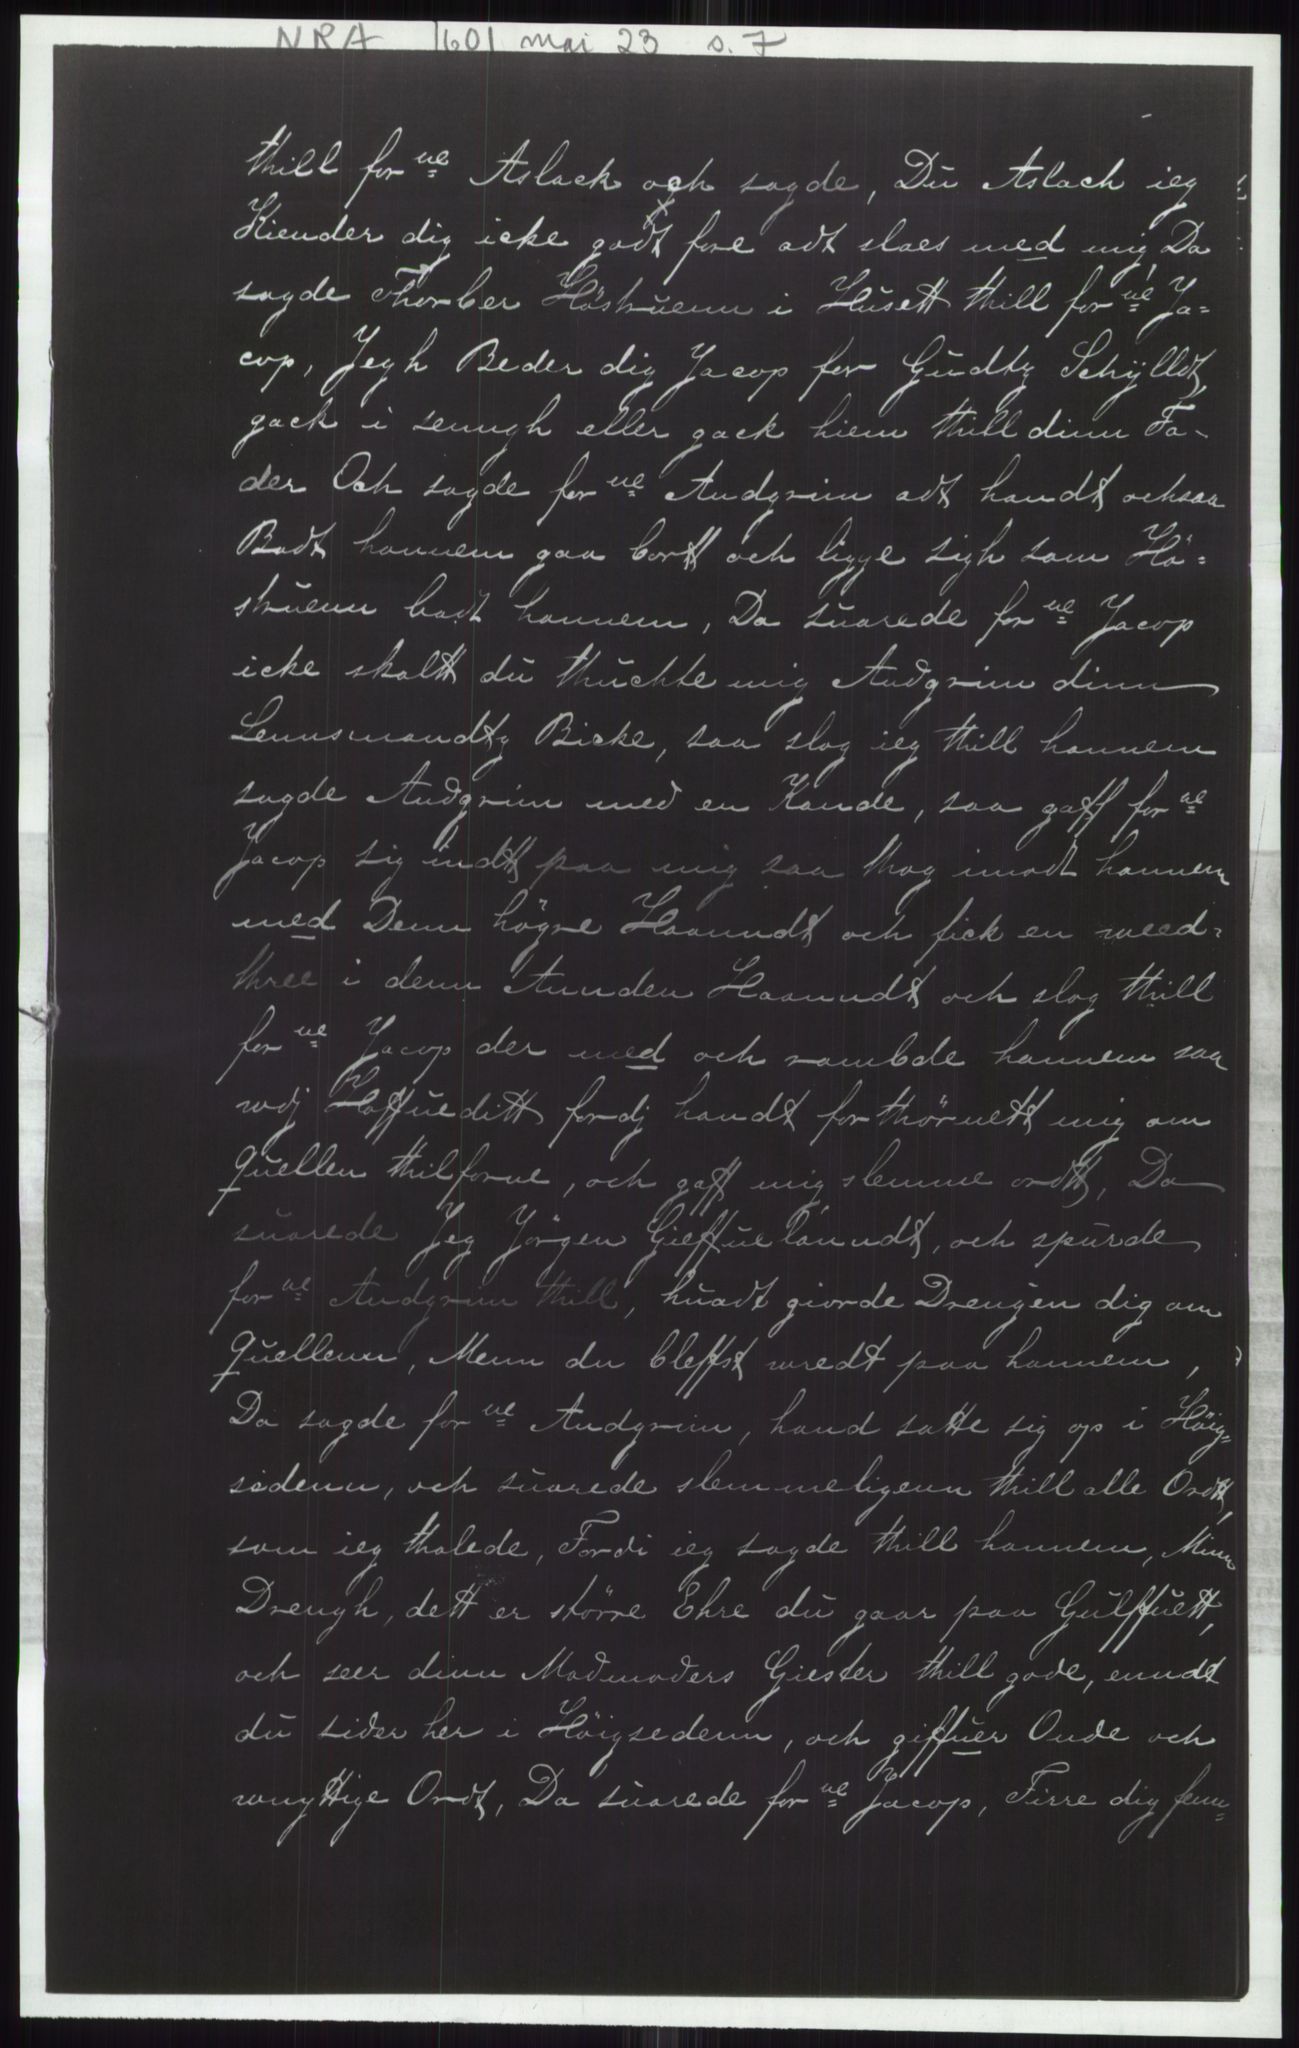 NRA 1601 mai 23 s. 7
thill for ue Aslack och sagde, Du Aslach ieg
Kiender dig icke godt fore adt slaes med mig, Da
sagde Thorber Höstruenn i Husett thill for ue Ja=
cop, Jegh Beder dig Jacop for Gudtz Schÿlldt,
gack i senngh eller gack hiem thill dinn Fa-
der Och sagde for ue Audgrim adt handt ochsaa
Badt hannem gaa bortt och ligge sigh som Hö=
struenn badt hannem, Da suarede for ue Jacop
icke skaltt du thuchte mig Audgrim dinn
Lennsmandtz Bicke, saa slog ieg thill hannem
sagde Audgrim med en Kande, saa gaff for ue
Jacop sig indtt paa mig saa thog imodt hannem
med Denn högre Haanndt och fick en weed=
three i denn Annden Haanndt och slog thill
for ue Jacop der med och rambde hannem saa
wdj Haffueditt fordj handt forthörnett mig om
quellen thilforne, och gaff mig slemme ordtt, Da
suarede Jeg Jörgen Gieffuelanndt, och spurde
for ue Audgrim thill, huadt giorde Drengen dig om
quellenn, Menn du bleffst wredt paa hannem,
Da sagde for ue Audgrim, hand satte sig op i Höig=
sedenn, och suarede slemmeligenn thill alle Ordtt,
som ieg thalede, Fordi ieg sagde thill hannem, Minn
Drengh, dett er större Ehre du gaar paa Gulffuett,
och seer dinn Madmoders Giester thill gode, enndt
du sider her i Höigsedenn, och giffuer Onde och
wnyttige Ordt, Da suarede for ue Jacop, Firre dig fenn=